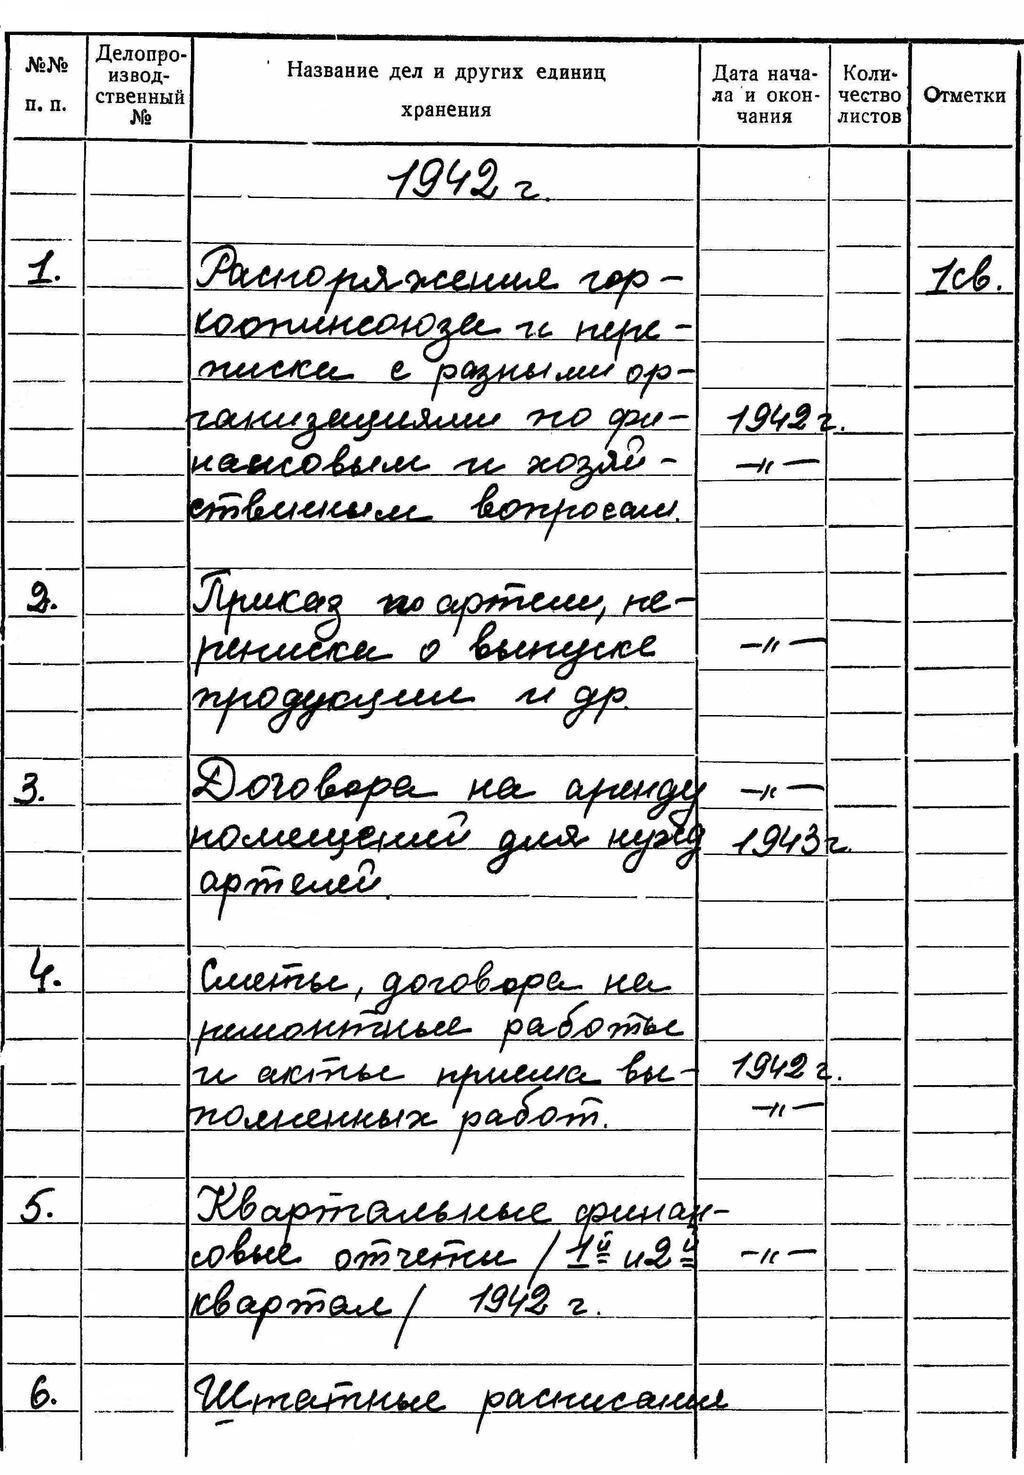 №№ п. п.
Делопро-
извод-
ственный
№
Название дел и других единиц
хранения
Дата нача-
ла и окон-
чания
Коли-
чество
листов
Отметки
1942 г.
1. Распоряжения гор- 1св.
коопинсоюза и пере-
писка с разными ор-
ганизациями по фи- 1942 г.
нансовым и хозяй- —"—
ственным вопросам.
2. Приказ по артели, пе-
реписка о выпуске —"—
продукции и др.
3. Договора на аренду —"—
помещений для нужд 1943 г.
артелей.
4. Сметы, договора на
ремонтные работы
и акты приема вы- 1942 г.
полненных работ. —"—
5. Квартальные финан-
совые отчеты /1й и 2й —"—
квартал/ 1942 г.
6. Штатные расписания